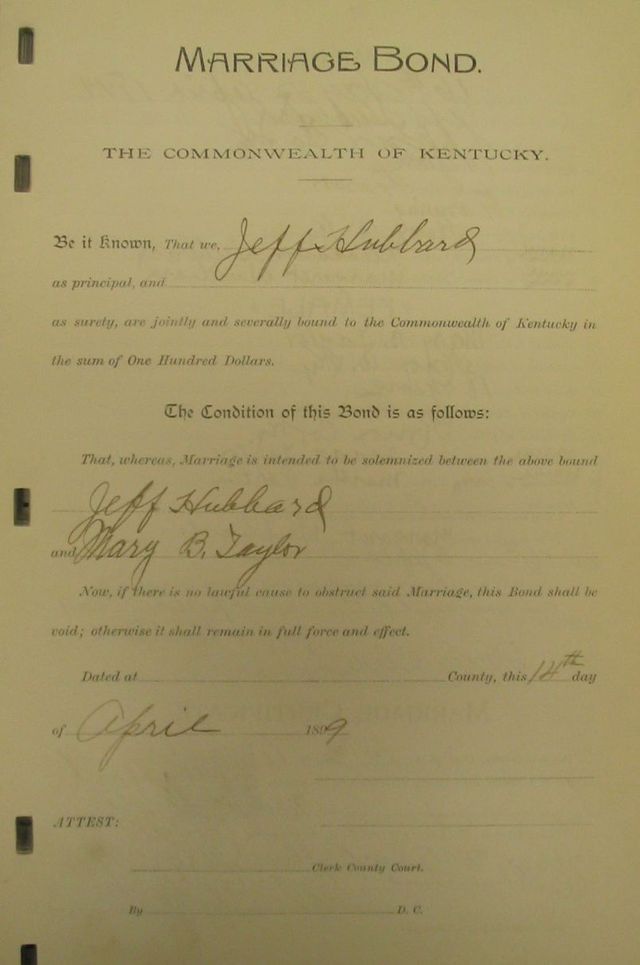 MARRIAGE BOND.
THE COMMONWEALTH OF KENTUCKY.
Be it Known, That we, Jeff Hubbard
as principal, and
as surety, are jointly and severally bound to the Commonwealth of Kentucky in
the sum of One Hundred Dollars.
The Condition of this Bond is as follows:
That, whereas, Marriage is intended to be solemnized between the above bound
Jeff Hubbard
and Mary B. Taylor
Now, if there is no lawful cause to obstruct said Marriage, this Bond shall be
void; otherwise it shall remain in full force and effect.
Dated at County, this 14th day
of April 1899
ATTEST:
Clerk County Court.
By D. C.